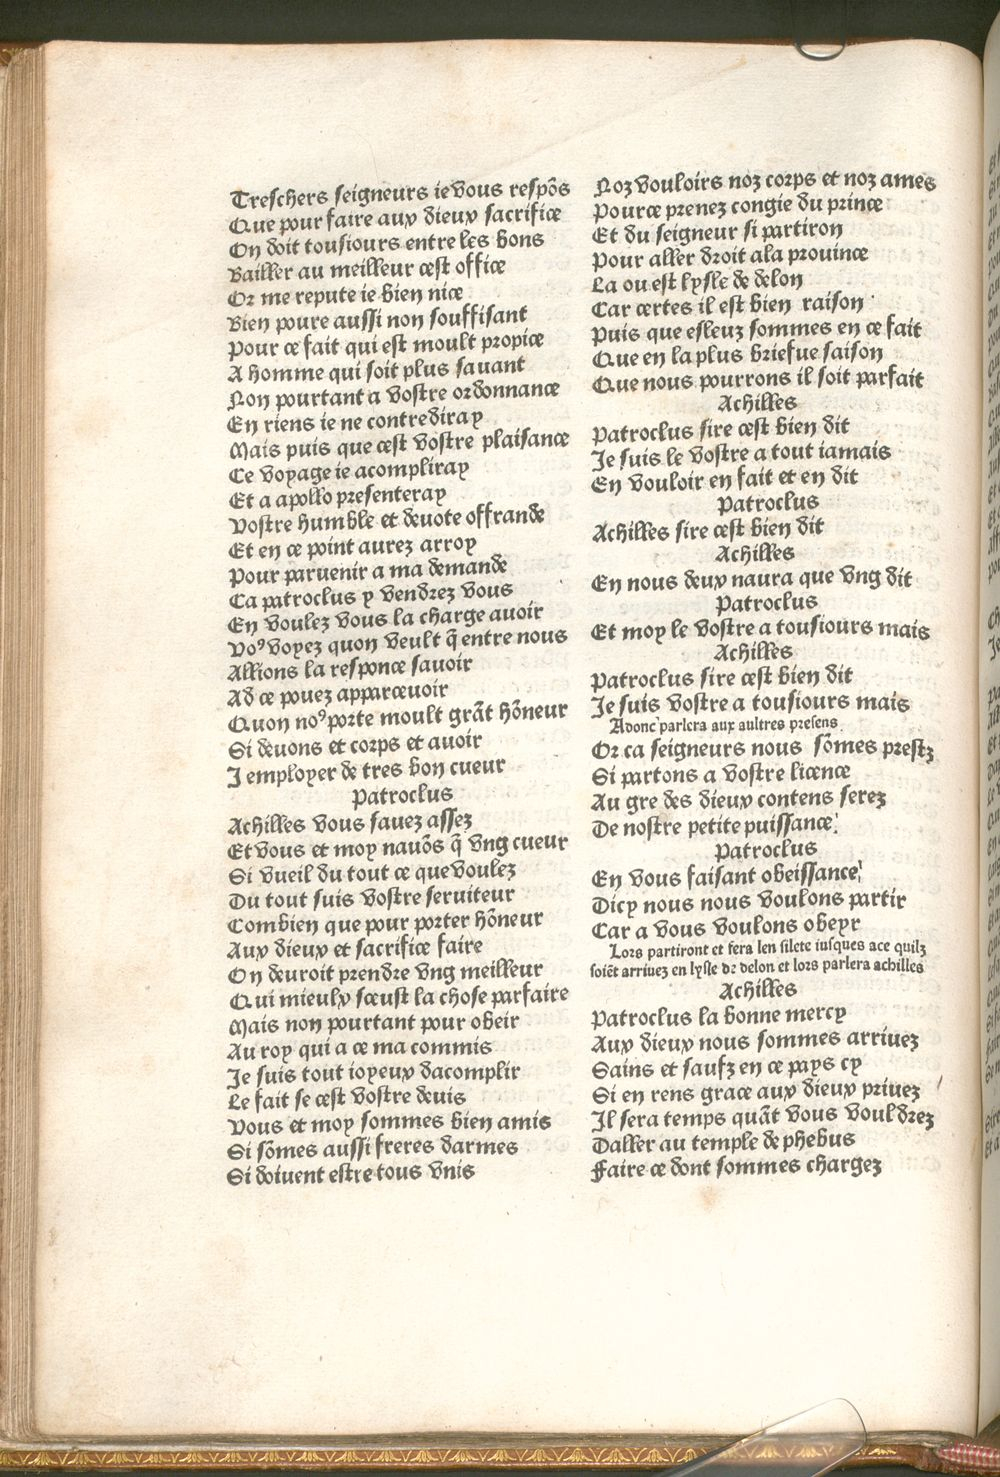 Treschers seigneurs ie vous respõs
Que pour faire aux dieux sacrifice
On doit tousiours entre les bons
Bailler au meilleur cest office
Or me repute ie bien nice
Bien poure aussi non souffisant
Pour ce fait qui est moult propice
A homme qui soit plus sauant
Non pourtant a vostre ordonnance
En riens ie ne contrediray
Mais puis que cest vostre plaisance
Ce voyage ie acompliray
Et a apollo presenteray
Vostre humble et deuote offrande
Et en ce point aurez arroy
Pour paruenir a ma demande
Ca patroclus y vendrez vous
En voulez vous la charge auoir
Voꝰ voyez quon veult q̃ entre nous
Allions la responce sauoir
Ad ce pouez apparceuoir
Quon noꝰ porte moult grãt hõneur
Si deuons et corps et auoir
J employer de tres bon cueur
Patroclus
Achilles vous sauez assez
Et vous et moy nauõs q̃ vng cueur
Si vueil du tout ce que voulez
Du tout suis vostre seruiteur
Combien que pour porter hõneur
Aux dieux et sacrifice faire
On deuroit prendre vng meilleur
Qui mieulx sceust la chose parfaire
Mais non pourtant pour obeir
Au roy qui a ce ma commis
Je suis tout ioyeux dacomplir
Le fait se cest vostre deuis
Vous et moy sommes bien amis
Si sõmes aussi freres darmes
Si doiuent estre tous vnis
Noz vouloirs noz corps et noz ames
Pource prenez congie du prince
Et du seigneur si partiron
Pour aller droit ala prouince
La ou est lysle de delon
Car certes il est bien raison
Puis que esleuz sommes en ce fait
Que en la plus briefue saison
Que nous pourrons il soit parfait
Achilles
Patroclus sire cest bien dit
Je suis le vostre a tout iamais
En vouloir en fait et en dit
Patroclus
Achilles sire cest bien dit
Achilles
En nous deux naura que vng dit
Patroclus
Et moy le vostre a tousiours mais
Achilles
Patroclus sire cest bien dit
Je suis vostre a tousiours mais
Adonc parlera aux aultres presens
Or ca seigneurs nous sõmes prestz
Si partons a vostre licence
Au gre des dieux contens serez
De nostre petite puissance.
Patroclus
En vous faisant obeissance
Dicy nous nous voulons partir
Car a vous voulons obeyr
Lors partiront et fera len silete iusques ace quilz
soiẽt arriuez en lysle de delon et lors parlera achilles
Achilles
Patroclus la bonne mercy
Aux dieux nous sommes arriuez
Sains et saufz en ce pays cy
Si en rens grace aux dieux priuez
Il sera temps quãt vous vouldrez
Daller au temple de phebus
Faire ce dont sommes chargez